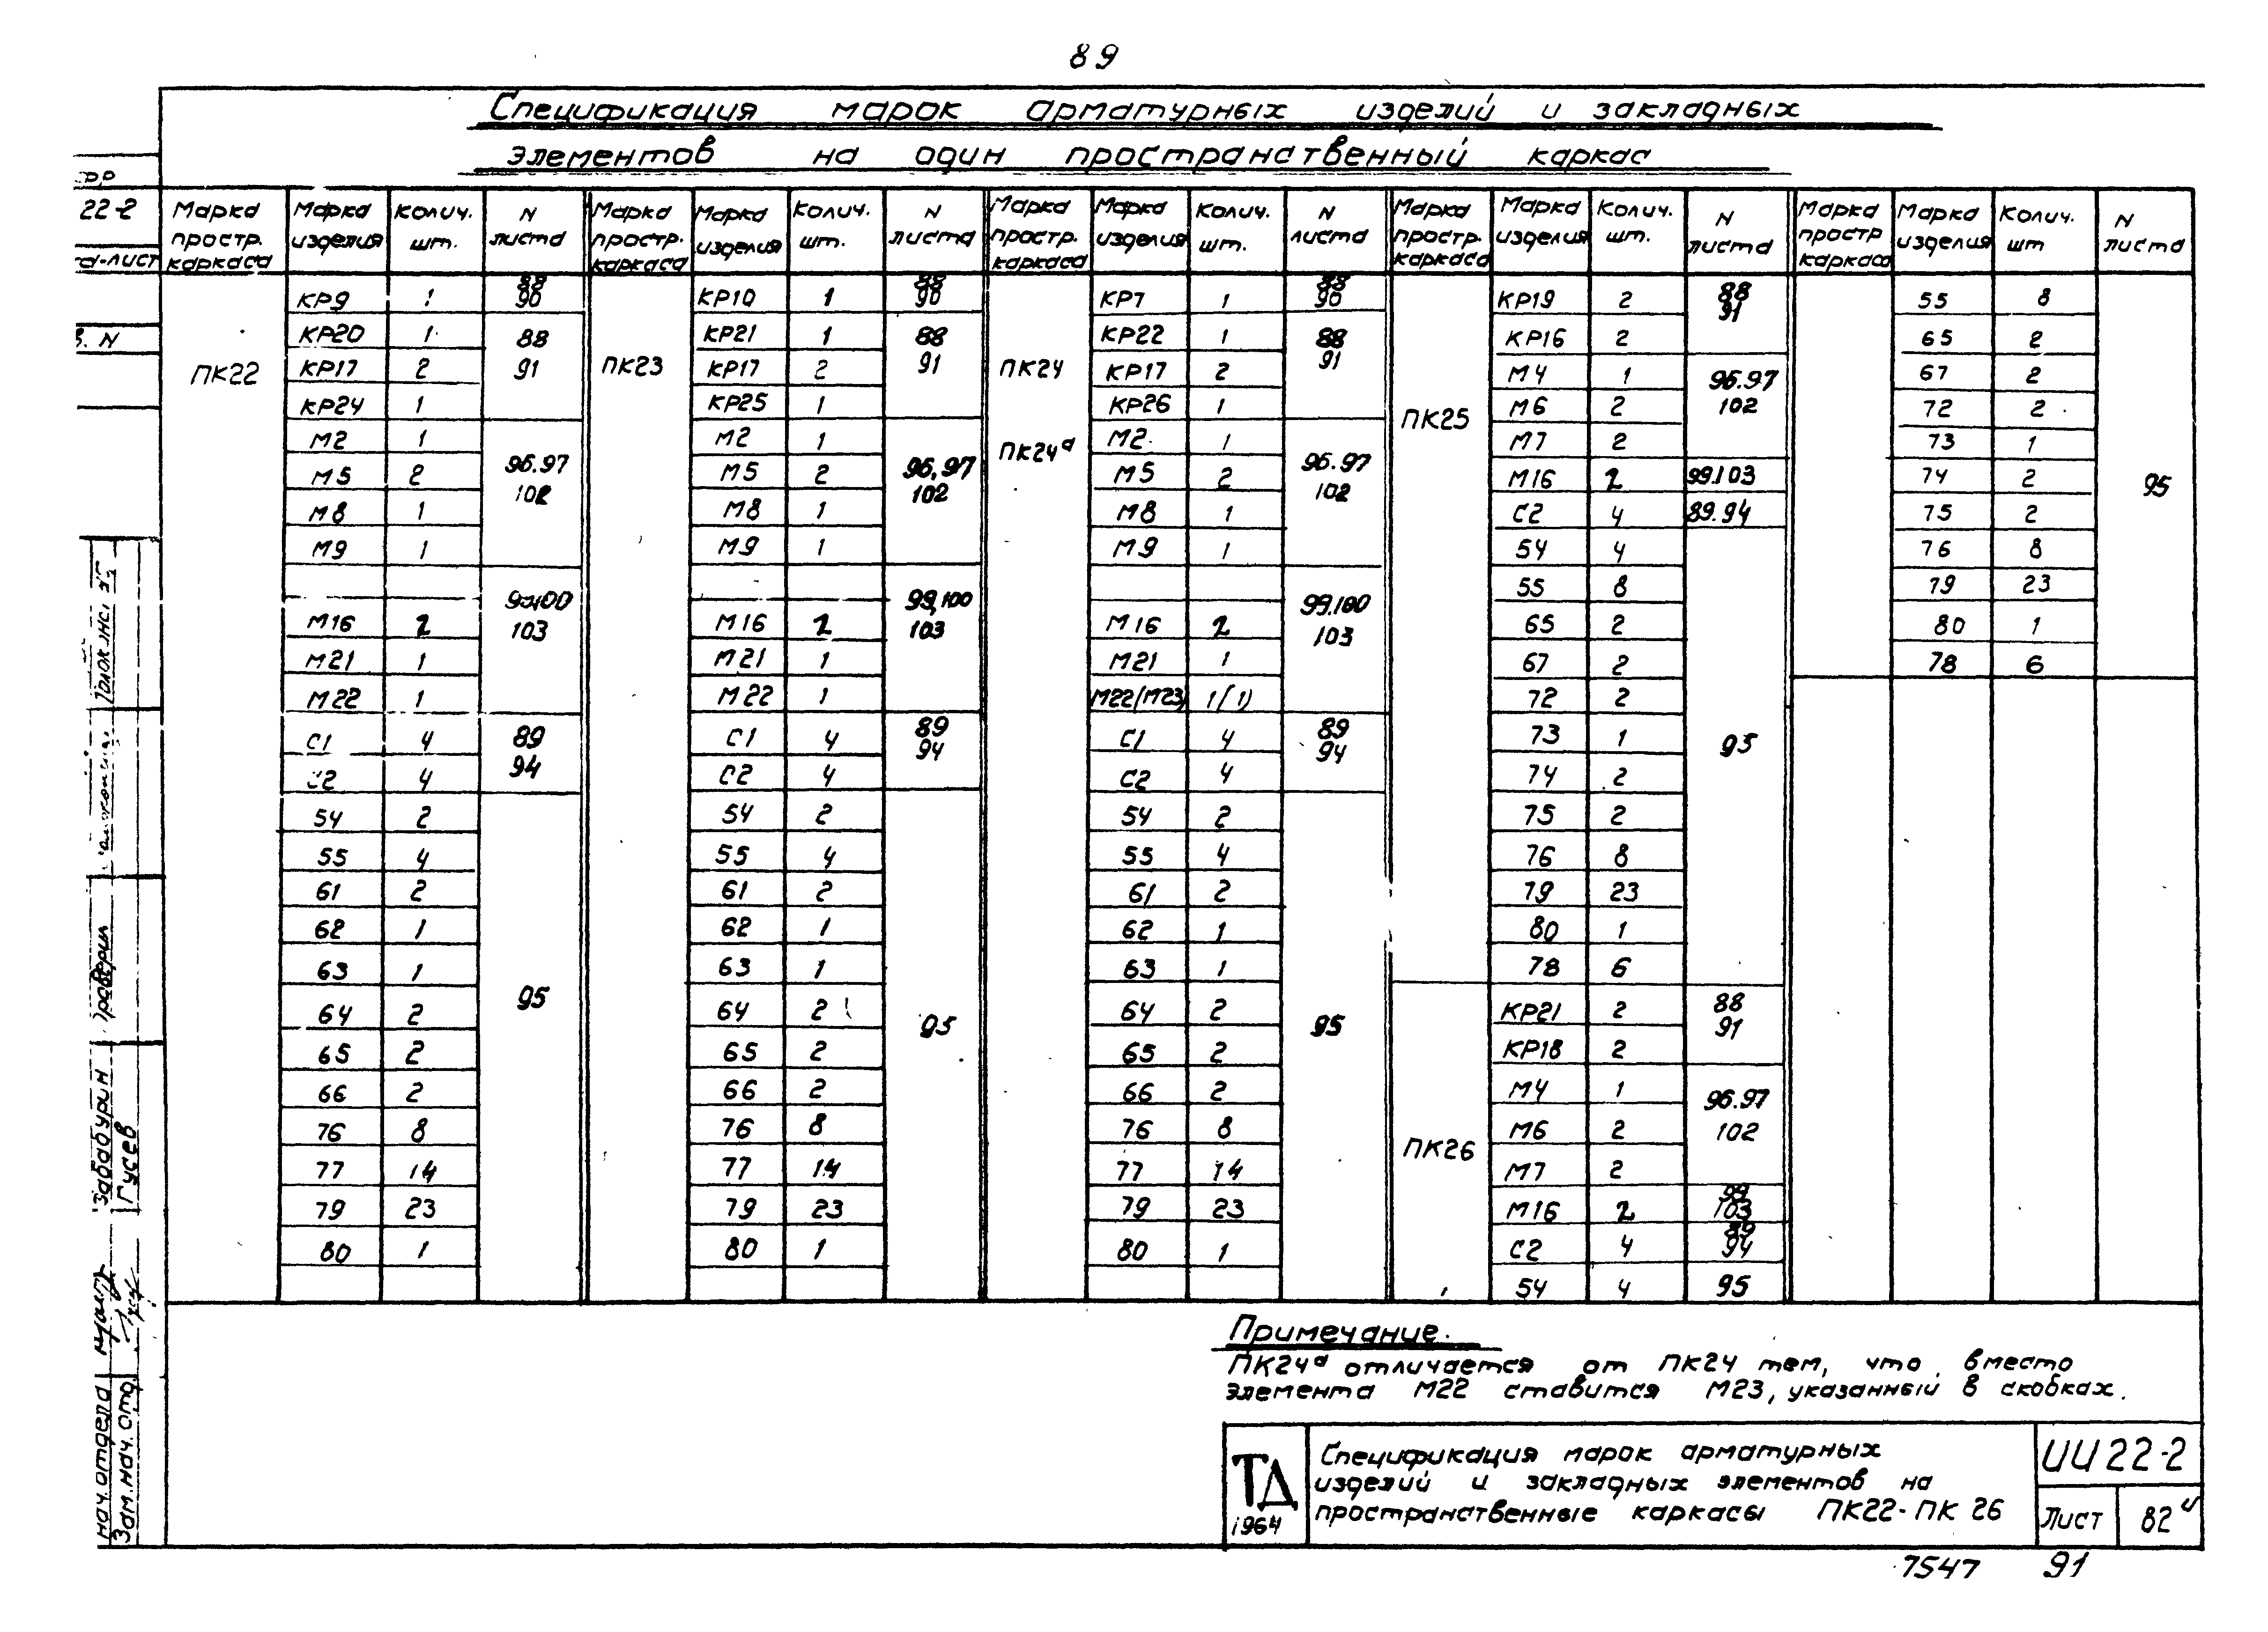 89
Спецификация марок арматурных изделий и закладных
элементов на один пространственный каркас
22-2
Марка простр. каркаса | Марка изделия | Колич. шт. | N листа | Марка простр. каркаса | Марка изделия | Колич. шт. | N листа | Марка простр. каркаса | Марка изделия | Колич. шт. | N листа | Марка простр. каркаса | Марка изделия | Колич. шт. | N листа | Марка простр каркаса | Марка изделия | Колич. шт | N листа
ПК22
КР9 1 88 90
КР20 1 88 91
КР17 2
КР24 1
М2 1 96.97 102
М5 2
М8 1
М9 1
М16 2 103
М21 1
М22 1
С1 4 89 94
С2 4
54 2 95
55 4
61 2
62 1
63 1
64 2
65 2
66 2
76 8
77 14
79 23
80 1
ПК23
КР10 1 88 90
КР21 1 88 91
КР17 2
КР25 1
М2 1 96,97 102
М5 2
М8 1
М9 1
М16 2 99,100 103
М21 1
М22 1
С1 4 89 94
С2 4
54 2 95
55 4
61 2
62 1
63 1
64 2
65 2
66 2
76 8
77 14
79 23
80 1
ПК24
ПК24а
КР7 1 88 90
КР22 1 88 91
КР17 2
КР26 1
М2 1 96.97 102
М5 2
М8 1
М9 1
М16 2 99.100 103
М21 1
М22(М23) 1(1)
С1 4 89 94
С2 4
54 2 95
55 4
61 2
62 1
63 1
64 2
65 2
66 2
76 8
77 14
79 23
80 1
ПК25
КР19 2 88 91
КР16 2
М4 1 96.97 102
М6 2
М7 2
М16 2 99.103
С2 4 89.94
54 4 95
55 8
65 2
67 2
72 2
73 1
74 2
75 2
76 8
79 23
80 1
78 6
ПК26
КР21 2 88 91
КР18 2
М4 1 96.97 102
М6 2
М7 2
М16 2 99 103
С2 4 89 94
54 4 95
55 8 95
65 2
67 2
72 2
73 1
74 2
75 2
76 8
79 23
80 1
78 6
Примечание.
ПК24а отличается от ПК24 тем, что вместо
элемента М22 ставится М23, указанный в скобках.
ТД
1964
Спецификация марок арматурных
изделий и закладных элементов на
пространственные каркасы ПК22-ПК 26
ИИ22-2
Лист 82
7547 91
нач. отдела
Зам. нач. отд.
Забабурин
Гусев